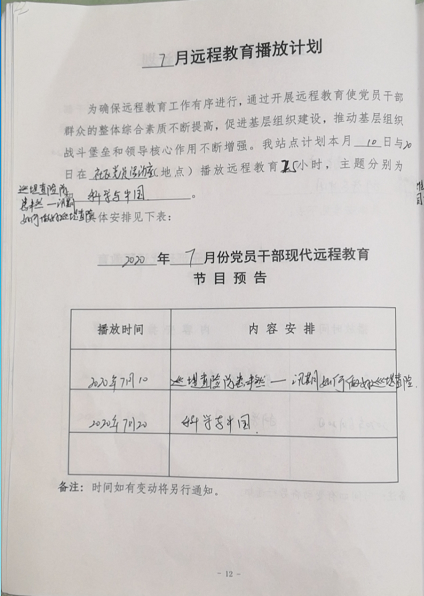 7月远程教育播放计划
为确保远程教育工作有序进行，通过开展远程教育使党员干部
群众的整体综合素质不断提高，促进基层组织建设，推动基层组织
战斗堡垒和领导核心作用不断增强。我站点计划本月10日与20
日在（地点）播放远程教育1.5小时，主题分别为
巡堤查险防患未然——汛期如何做好巡堤查险
科学与中国。
体安排见下表：
2020年7月份党员干部现代远程教育
节目预告
播放时间 内容安排
2020年7月10 巡堤查险防患未然——汛期如何做好巡堤查险
2020年7月20 科学与中国
备注：时间如有变动将另行通知。
- 12 -